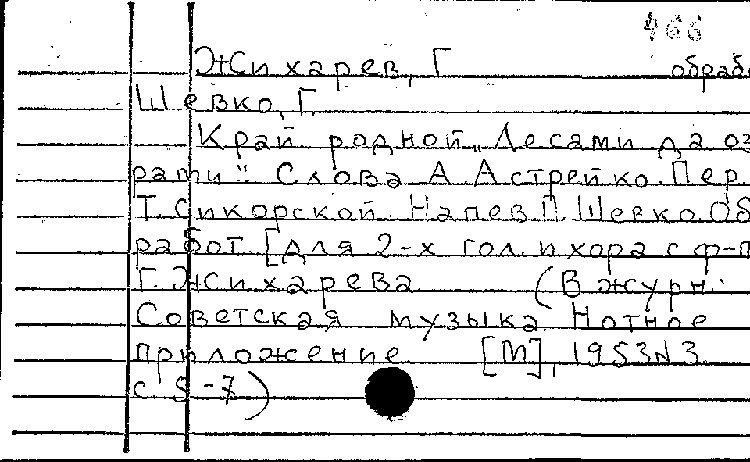 466
Жихарев, Г обраб
Шевко, Г.
Край родной „Лесами да оз
рати" Слова А Астрейко. Пер.
Т. Сикорской. Напев П. Шевко. Об
работ [для 2-х гол. и хора с ф-п
Г. Жихарева (В журн.
Советская музыка Нотное
приложение [М], 1953 N3
с. 5-7)